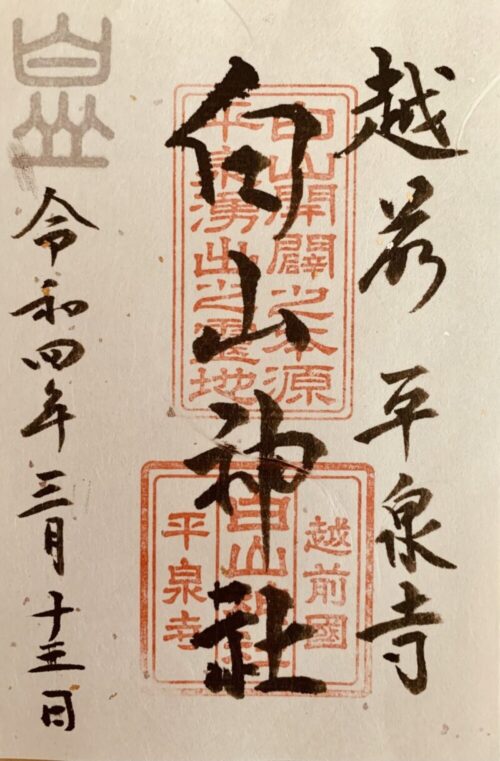 越前 平泉寺
白山神社
白山開闢之本源
平泉湧出之靈地
越前國
白山神社
平泉寺
白山
令和四年三月十五日